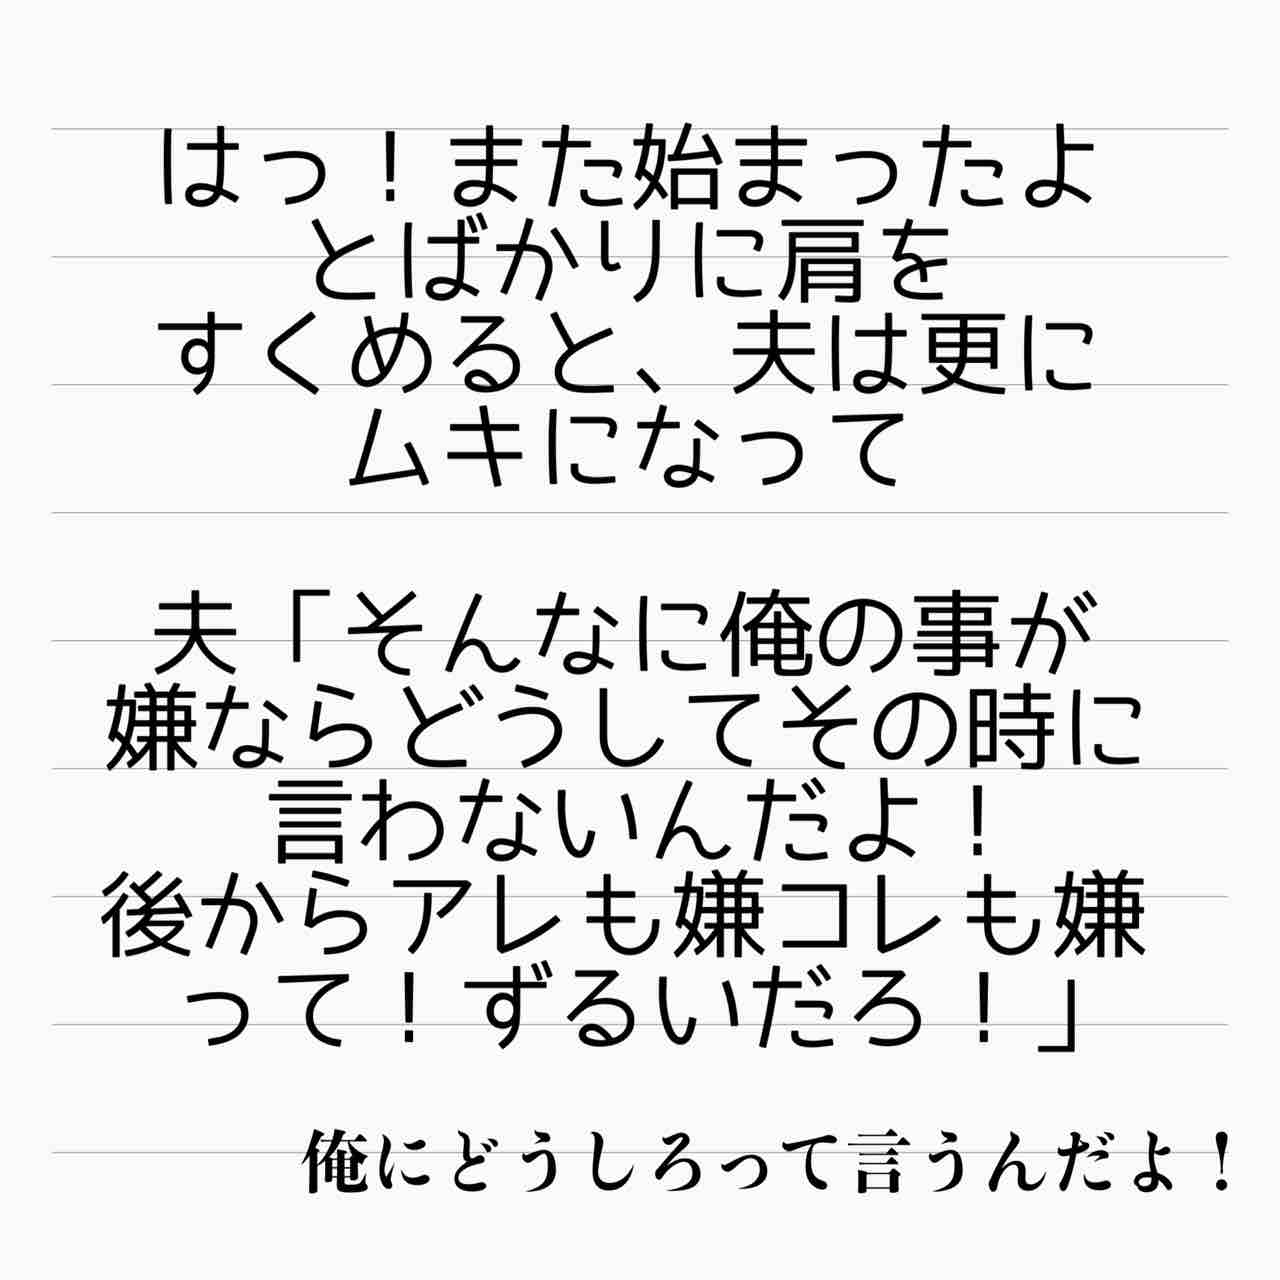 はっ！また始まったよ
とばかりに肩を
すくめると、夫は更に
ムキになって
夫「そんなに俺の事が
嫌ならどうしてその時に
言わないんだよ！
後からアレも嫌コレも嫌
って！ずるいだろ！」
俺にどうしろって言うんだよ！